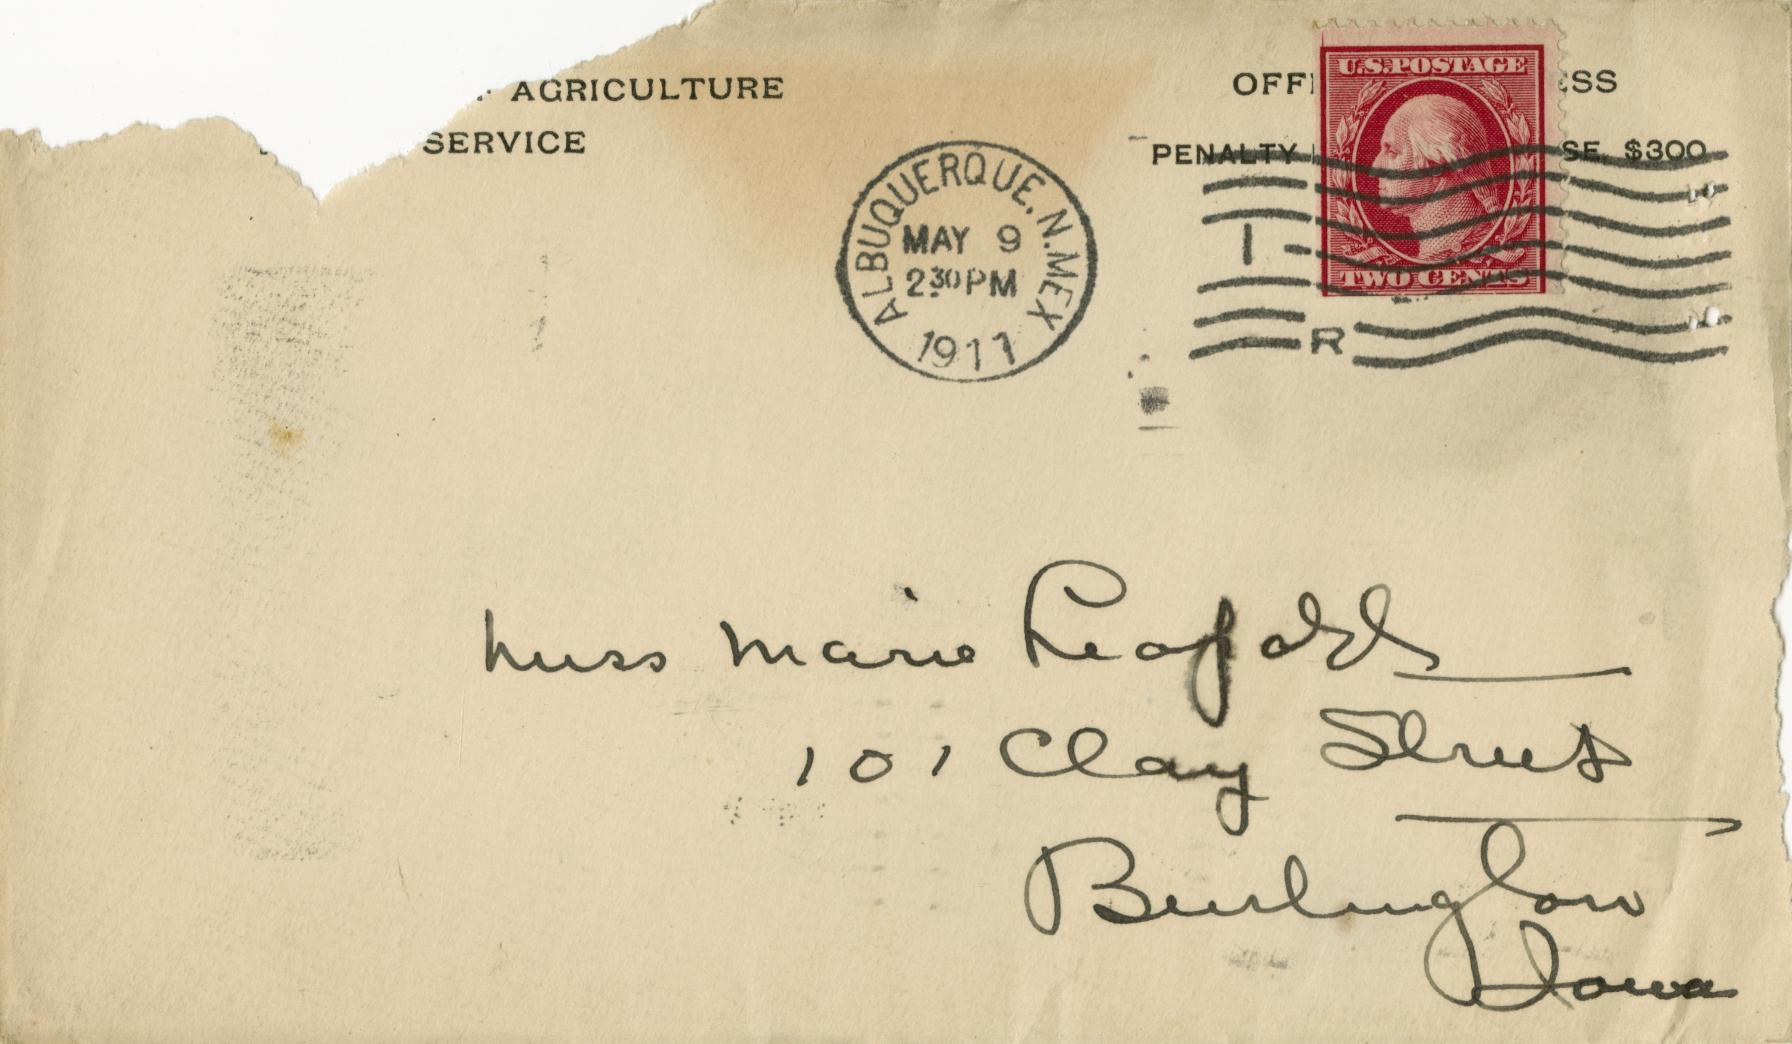 AGRICULTURE
SERVICE
OFFI ESS
PENALTY SE, $300
U.S. POSTAGE
TWO CENTS
ALBUQUERQUE, N. MEX
MAY 9
2 30 PM
1911
1
R
Miss Marie Leopold
101 Clay Street
Burlington
Iowa